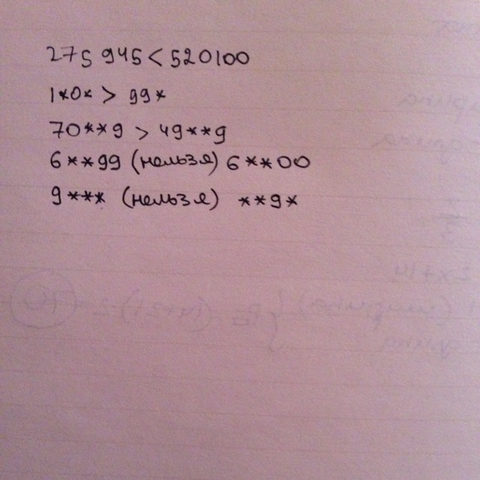 275 945 < 520100
1*0* > 99*
70**9 > 49**9
6**99 (нельзя) 6**00
9*** (нельзя) **9*
2x+14